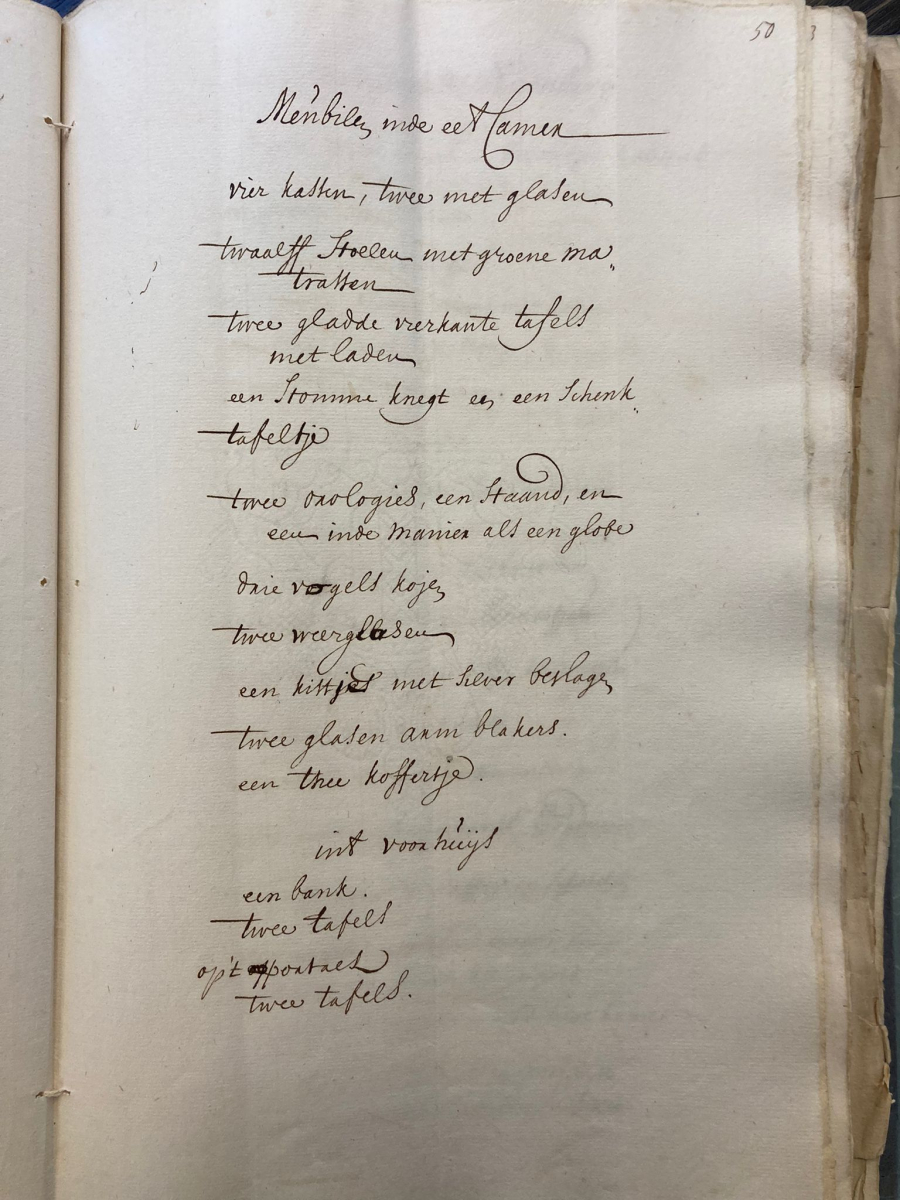 50
Meubilen inde eet Camer
vier kassen, twee met glasen
twaalff Stoelen met groene ma„
trassen
twee gladde vierkante tafels
met laden
een Stomme knegt en een Schenk„
tafeltje
twee orologies, een Staand, en
een inde manier als een globe
drie vogels kojen
twee weerglasen
een kistje met silver beslagen
twee glasen arm blakers.
een thee koffertje.
int voorhuijs
een bank.
twee tafels
op't portael
twee tafels.